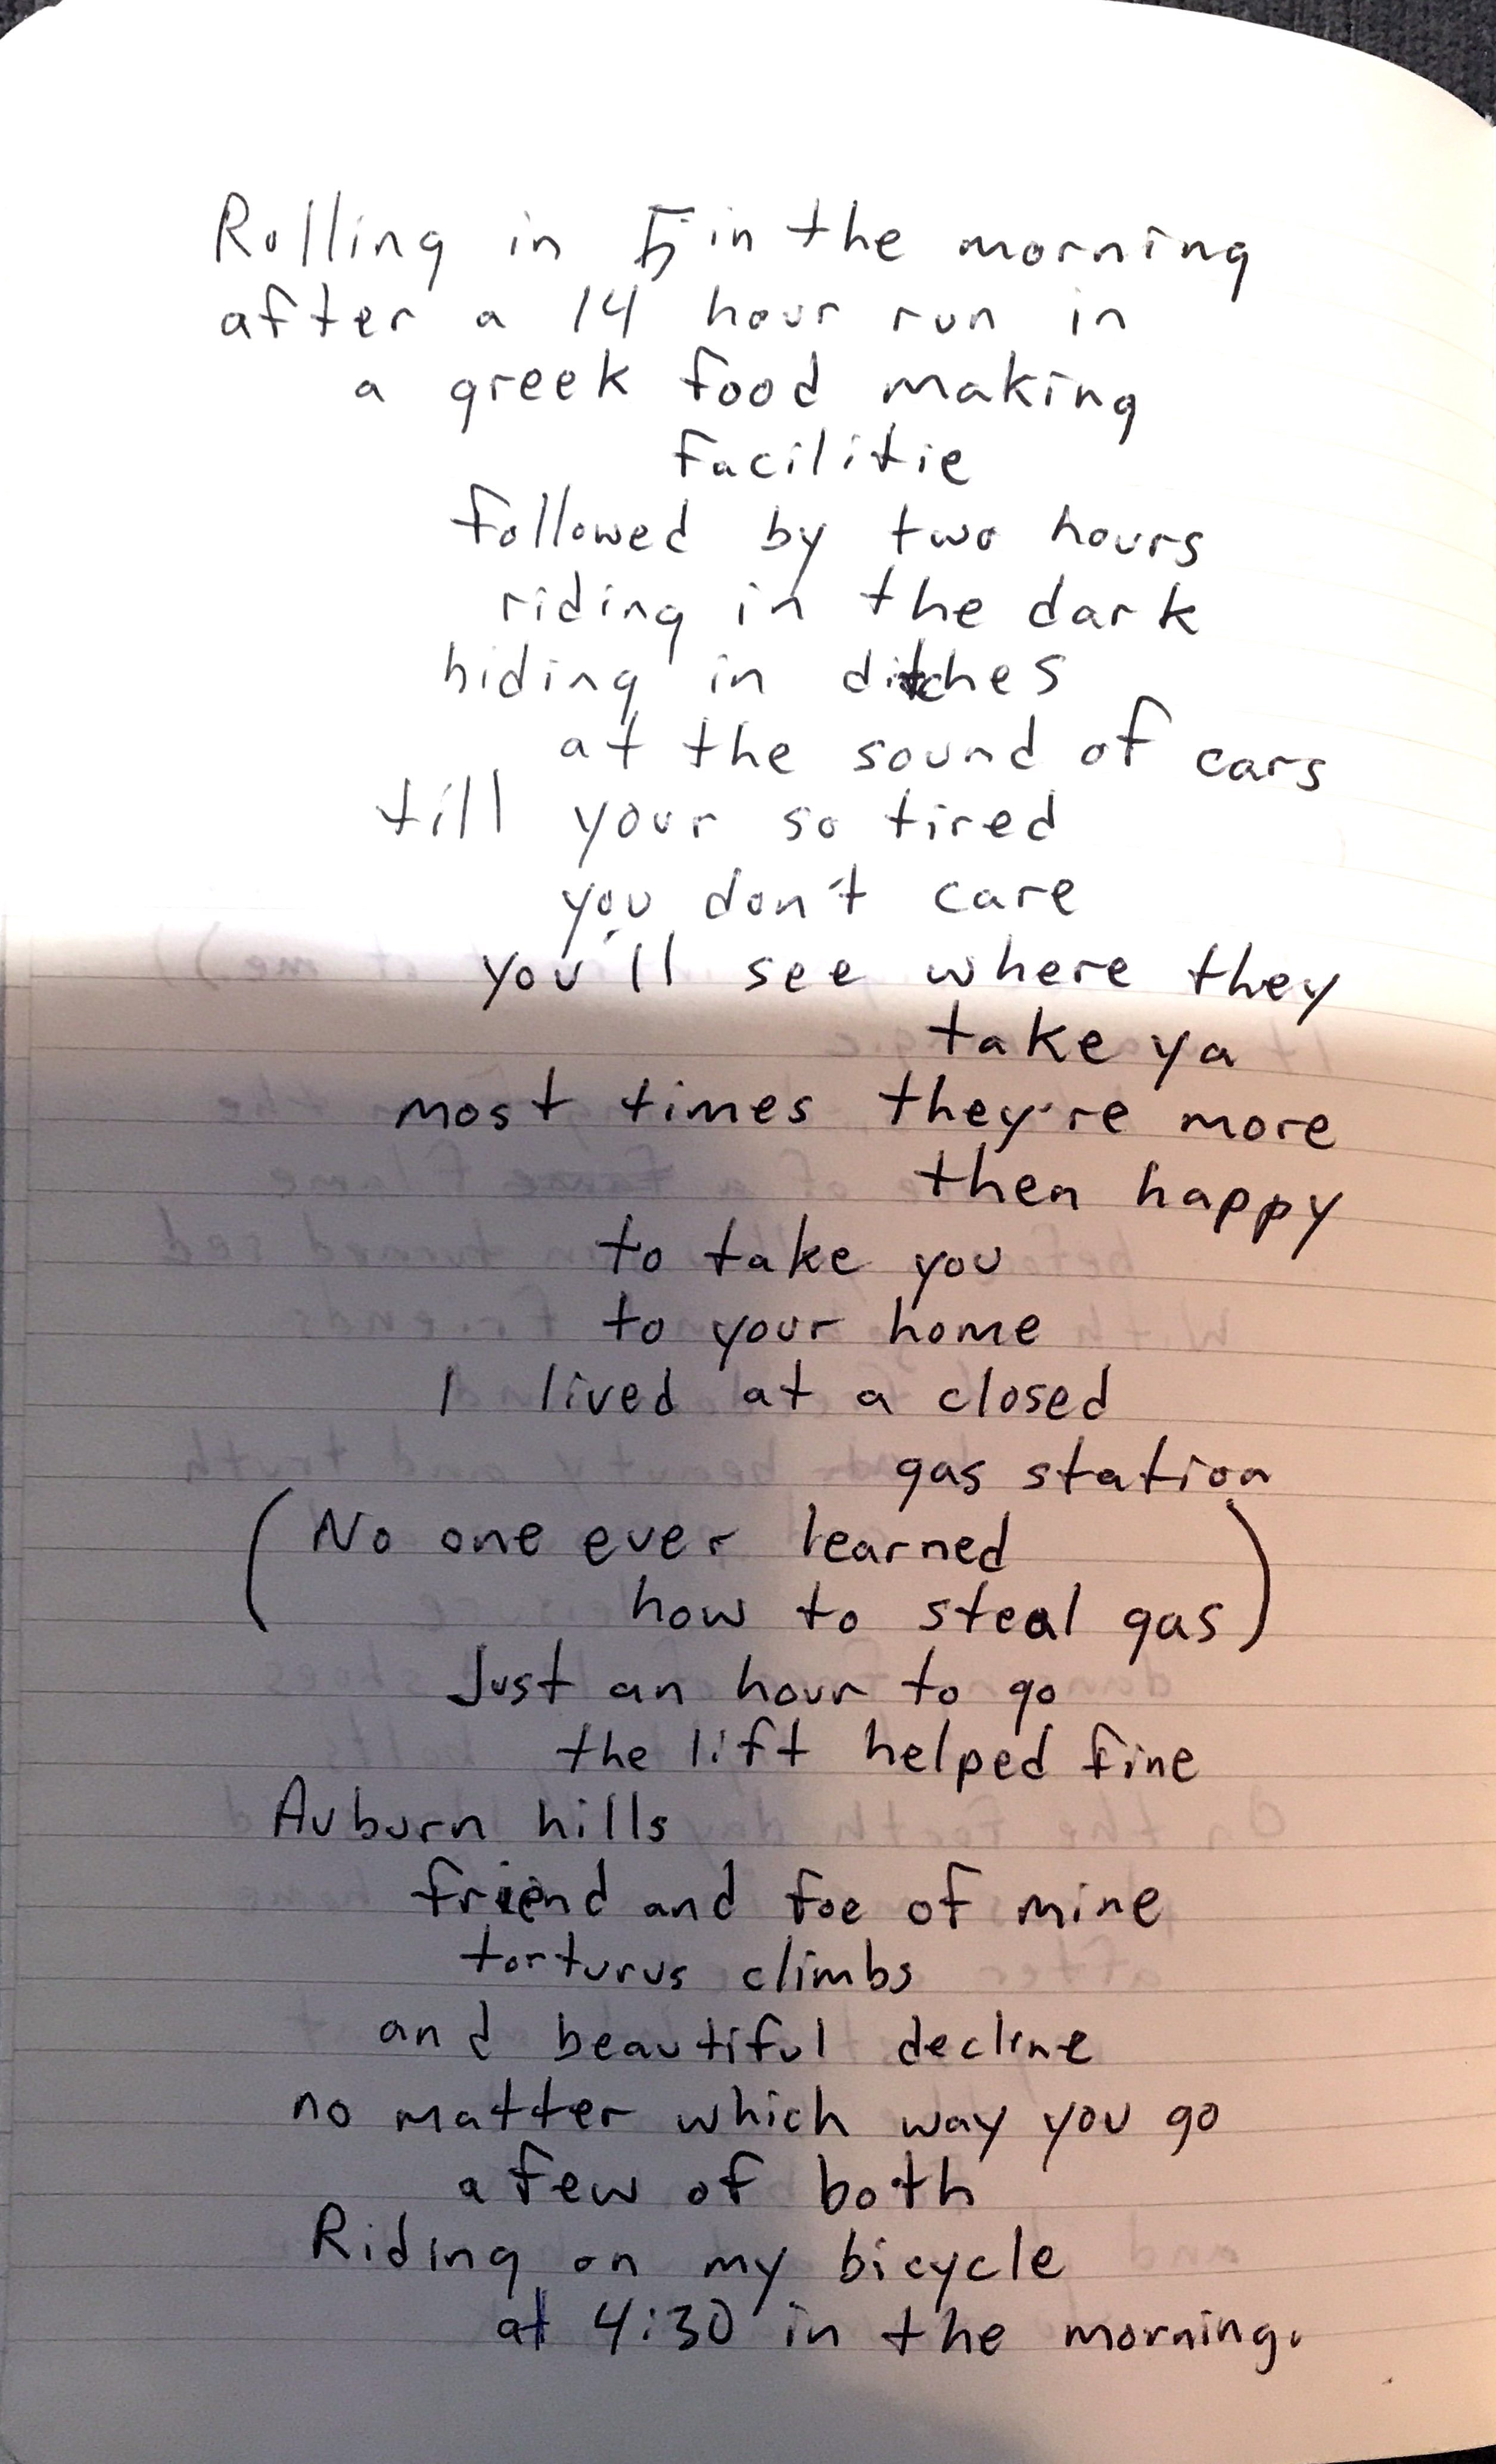 Rolling in 5 in the morning
after a 14 hour run in
a greek food making
facilitie
followed by two hours
riding in the dark
hiding in ditches
at the sound of cars
till your so tired
you don't care
you'll see where they
take ya
most times they're more
then happy
to take you
to your home
I lived at a closed
gas station
(No one ever learned
how to steal gas)
Just an hour to go
the lift helped fine
Auburn hills
friend and foe of mine
torturus climbs
and beautiful decline
no matter which way you go
a few of both
Riding on my bicycle
at 4:30 in the morning.